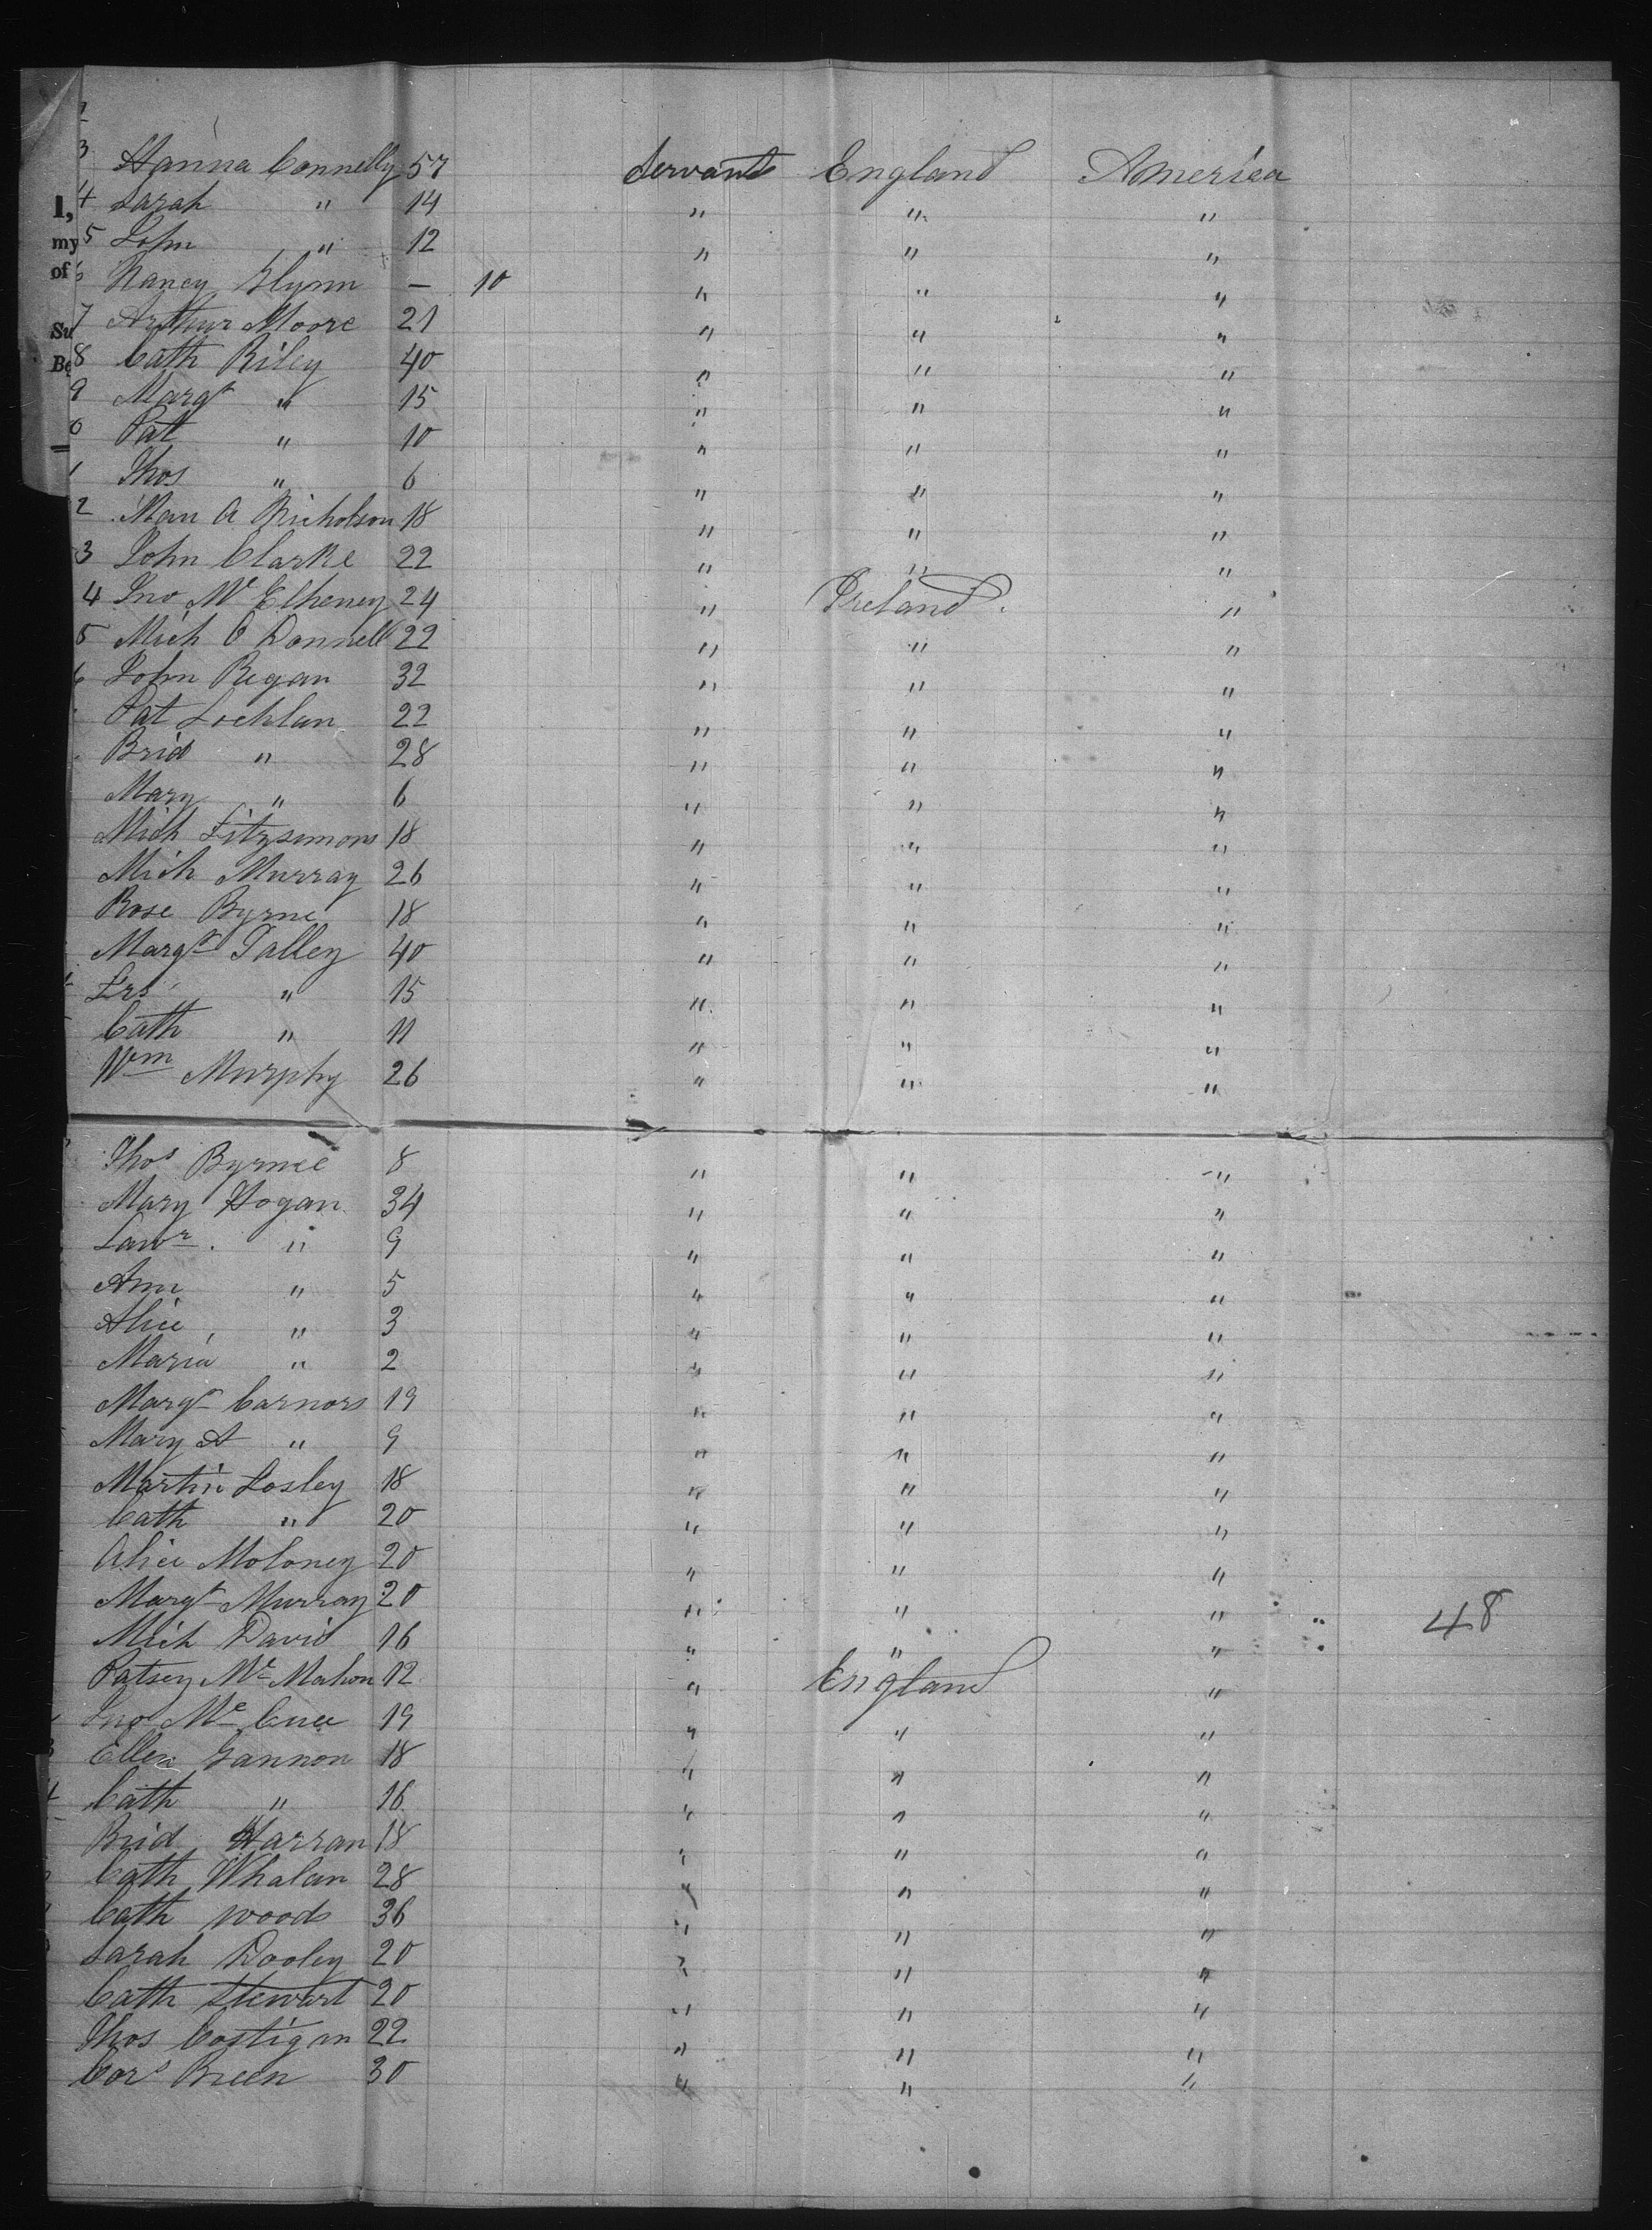 3 Hanna Connelly 57 Servants England America
4 Sarah " 14 " " "
5 John " 12 " " "
6 Nancy Glynn — 10 " " "
7 Arthur Moore 21 " " "
8 Cath Riley 40 " " "
9 Margt " 15 " " "
0 Pat " 10 " " "
1 Thos " 6 " " "
2 Mary A Nicholson 18 " " "
3 John Clarke 22 " " "
4 Jno Mc Elheney 24 " Ireland "
5 Mich O Donnell 22 " " "
6 John Regan 32 " " "
Pat Lochlan 22 " " "
Brid " 28 " " "
Mary " 6 " " "
Mich Fitzsimons 18 " " "
Mich Murray 26 " " "
Rose Byrne 18 " " "
Margt Talley 40 " " "
Frs " 15 " " "
Cath " 11 " " "
Wm Murphy 26 " " "
Thos Byrnee 8 " " "
Mary Hogan 34 " " "
Lawr " 9 " " "
Ann " 5 " " "
Alice " 3 " " "
Maria " 2 " " "
Margt Carnors 19 " " "
Mary A " 9 " " "
Martin Losley 18 " " "
Cath " 20 " " "
Alice Moloney 20 " " "
Margt Murray 20 " " "
Mich David 16 " " " 48
Patsey Mc Mahon 12 " England "
Jno Mc Cuee 19 " " "
Ellen Gannon 18 " " "
Cath " 16 " " "
Brid Harran 18 " " "
Cath Whalan 28 " " "
Cath Woods 36 " " "
Sarah Dooley 20 " " "
Cath Stewart 20 " " "
Thos Costigan 22 " " "
Cors Breen 30 " " "
1,
my
of
Su
Be